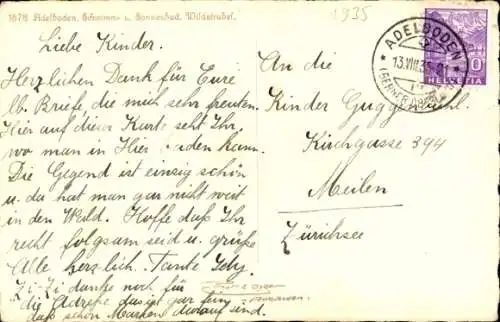 1678 Adelboden, Schwimm- u. Sonnenbad, Wildstrubel.
1935
Liebe Kinder.
Herzlichen Dank für Eure
lb. Briefe die mich sehr freuten.
Hier auf dieser Karte seht Ihr,
wo man in Hier baden kann.
Die Gegend ist einzig schön
u. da hat man gar nicht weit
in den Wald. Hoffe daß Ihr
recht folgsam seid u. grüße
Alle herzlich. Tante
danke noch für
die Adresse
daß schön Marken darauf sind.
An die
Kinder Guggenbühl.
Kirchgasse 394
Meilen
Zürichsee
ADELBODEN
13.VIII.35
(BERNER OBERLAND)
HELVETIA
10